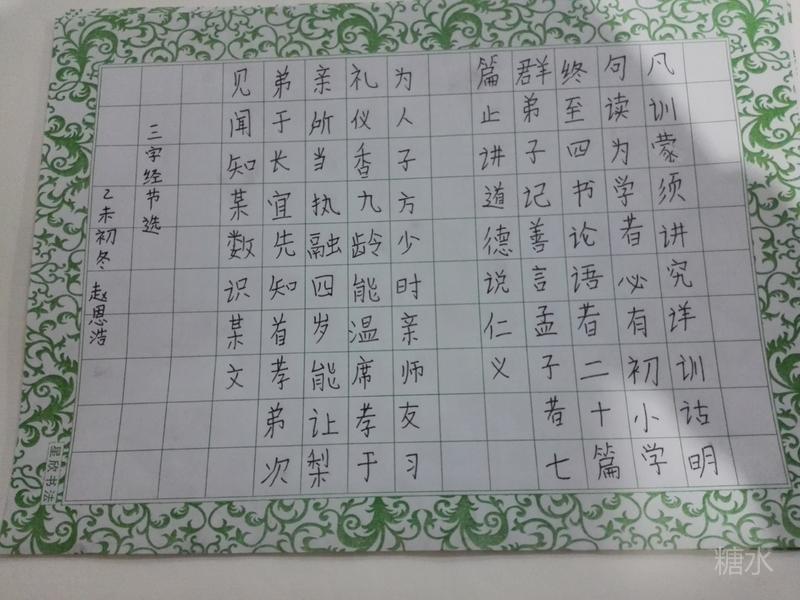 凡训蒙须讲究详训诂明
句读为学者必有初小学
终至四书论语者二十篇
群弟子记善言孟子者七
篇止讲道德说仁义
为人子方少时亲师友习
礼仪香九龄能温席孝于
亲所当执融四岁能让梨
弟于长宜先知首孝弟次
见闻知某数识某文
三字经节选
乙未初冬 赵恩浩
星欣书法
糖水